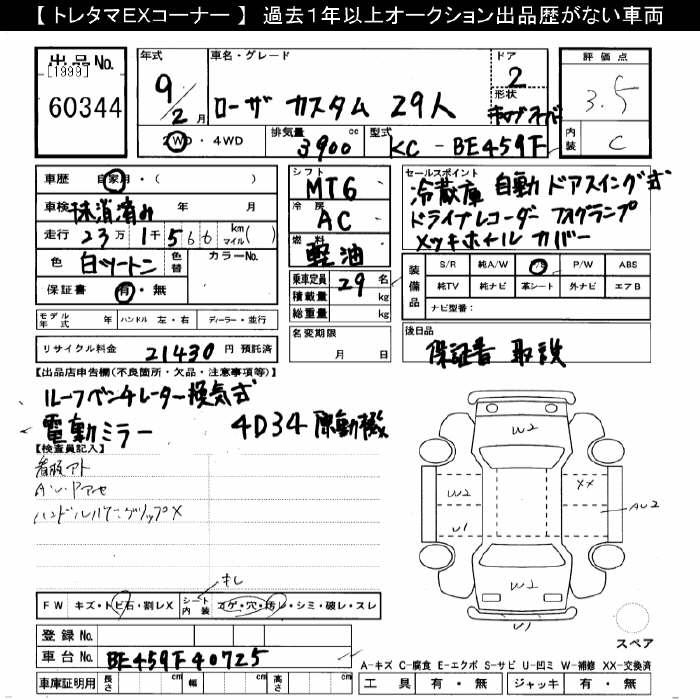 【 トレタマEXコーナー 】 過去１年以上オークション出品歴がない車両
出品No.
[1999]
60344
年式
9/2月
車名・グレード
ローザ カスタム 29人
ドア
2
形状
評価点
3.5
内装
C
2WD・4WD
排気量
3900 cc
型式
KC - BE459F
車歴 自家用・( )
車検 抹消済み 年 月
走行 23万1千566 km マイル( )
色 白ツートン 色替 カラーNo.
保証書 有・無
シフト
MT6
冷房
AC
燃料
軽油
乗車定員 29名
積載量 kg
総重量 kg
セールスポイント
冷蔵庫 自動ドアスイング式
ドライブレコーダー フォグランプ
メッキホイルカバー
装備品
S/R 純A/W P/S P/W ABS
純TV 純ナビ 革シート 外ナビ エアB
ナビ型番:
モデル年式 年 ハンドル 左・右 ディーラー・並行
名変期限
月 日
リサイクル料金 21430 円 預託済
後日品
保証書 取説
【出品店申告欄(不良箇所・欠品・注意事項等)】
ルーフベンチレーター換気式
電動ミラー 4D34 原動機
【検査員記入】
看板アト
ハンドルカバーグリップX
W2
W2
XX
AU2
U1
W2
U1
スペア
FW キズ・トビ石・割レX
シート内装 コゲ・穴・汚レ・シミ・破レ・スレ
登録No.
車台No. BE459F40725
車庫証明用 長さ cm 幅 cm 高さ cm
A-キズ C-腐食 E-エクボ S-サビ U-凹ミ W-補修 XX-交換済
工具 有・無 ジャッキ 有・無